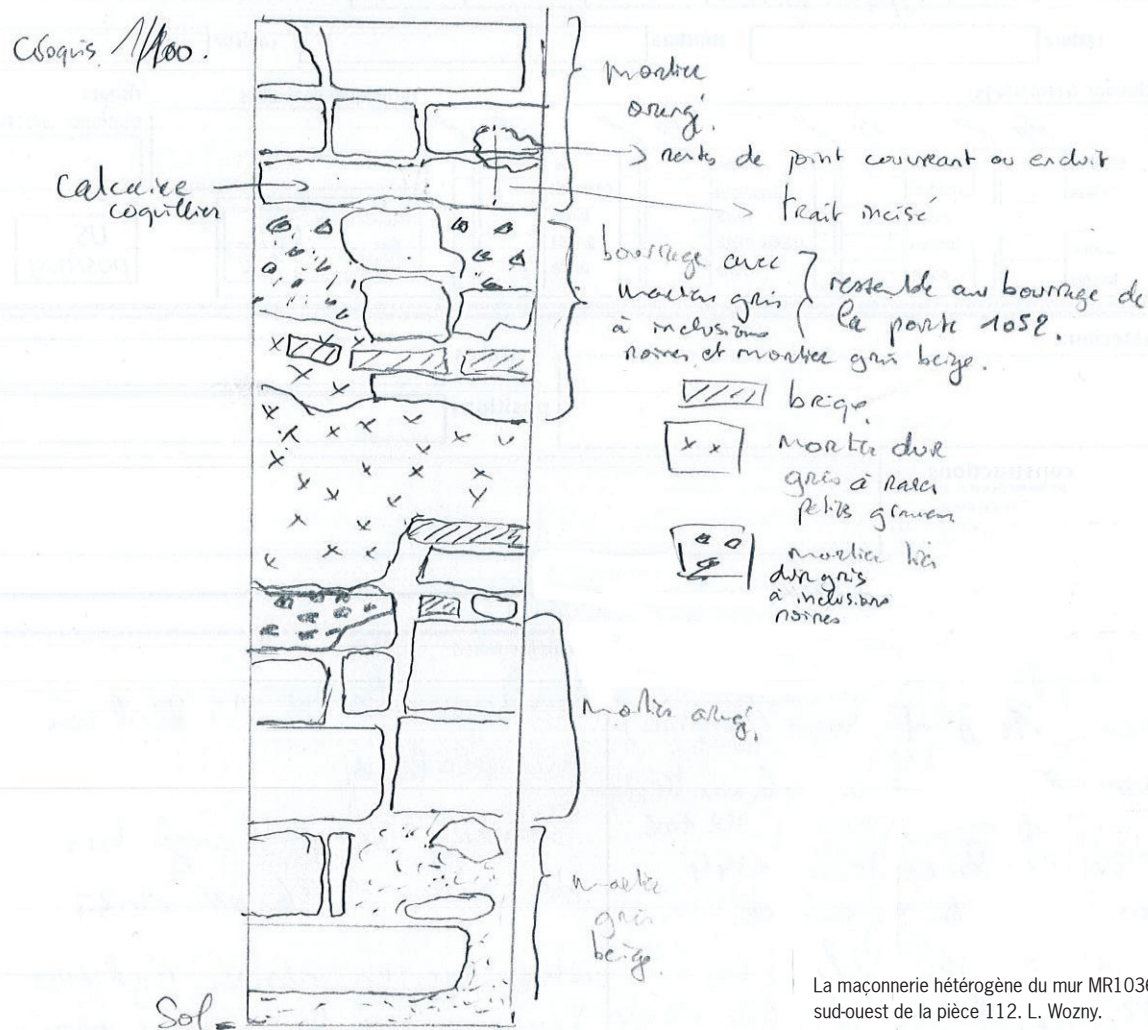 Croquis 1/100.
mortier
orangé.
restes de joint couvrant ou enduit
Calcaire
coquillier
trait incisé
bourrage avec
mortier gris
à inclusions
noires et mortier gris beige.
ressemble au bourrage de
la porte 1052.
brique
mortier dur
gris à rares
petits graviers
mortier très
dur gris
à inclusions
noires
US
positive
constructions
mortier orangé.
mortier
gris
beige.
Sol
La maçonnerie hétérogène du mur MR1036
sud-ouest de la pièce 112. L. Wozny.